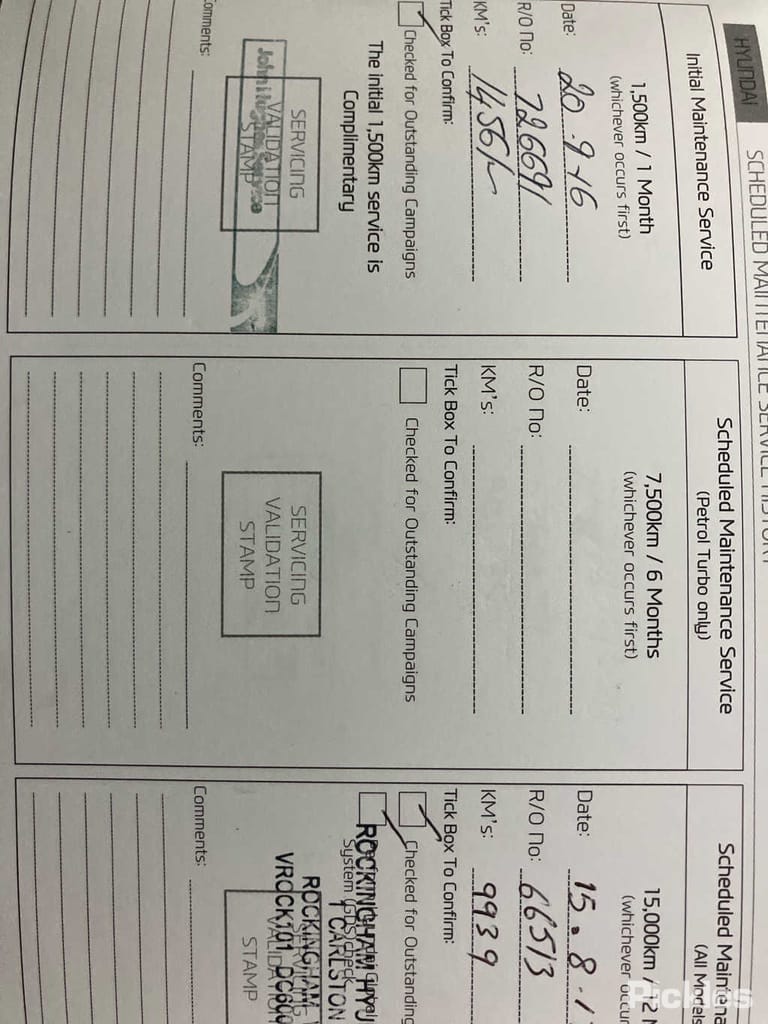 HYUNDAI
SCHEDULED MAINTENANCE SERVICE HISTORY
Initial Maintenance Service
1,500km / 1 Month
(whichever occurs first)
Date: 20.9-16
R/O No: 726691
KM's:
Tick Box To Confirm:
Checked for Outstanding Campaigns
The initial 1,500km service is
Complimentary
SERVICING
VALIDATION
STAMP
John Hughes Service
Comments:
Scheduled Maintenance Service
(Petrol Turbo only)
7,500km / 6 Months
(whichever occurs first)
Date:
R/O No:
KM's:
Tick Box To Confirm:
Checked for Outstanding Campaigns
SERVICING
VALIDATION
STAMP
Comments:
Scheduled Maintena
(All Models
15,000km / 12 M
(whichever occur
Date: 15.8.1
R/O No: 66513
KM's: 9939
Tick Box To Confirm:
Checked for Outstanding
System (GDS) check
ROCKINGHAM HYU
1 CARLSTON
ROCKINGHAM
VROCK101 DC600
SERVICING
VALIDATION
STAMP
Comments:
Pickles